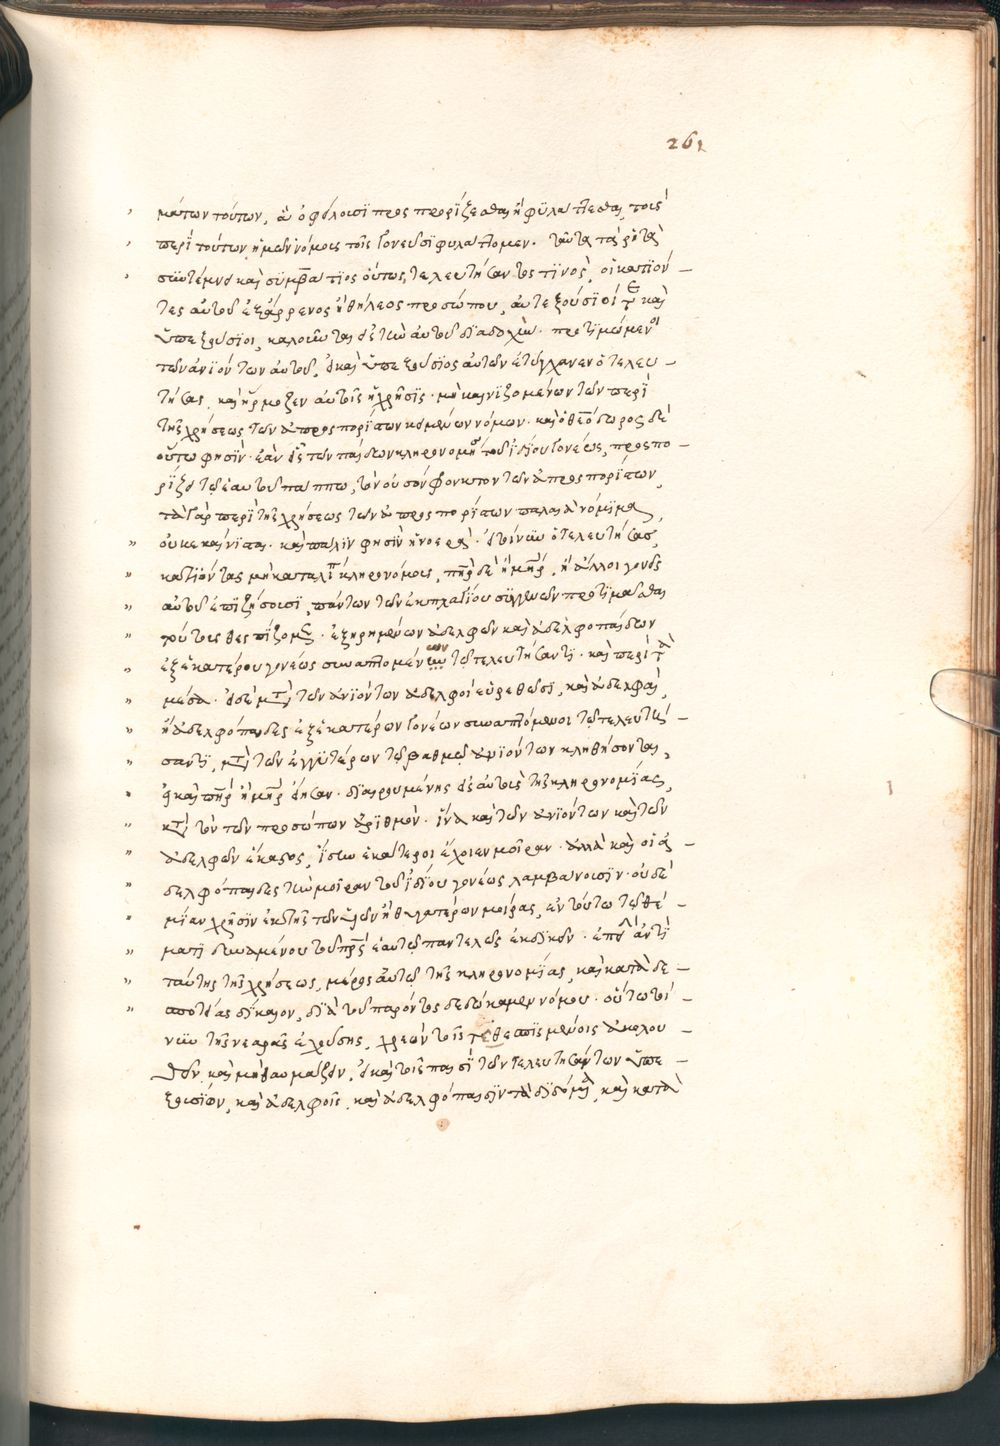 261
μάτων τούτων, ἃ ὀφείλουσι προσπορίζεσθαι ἢ φυλάττεσθαι, τοῖς
περὶ τούτων ἡμῶν νόμοις τοῖς γονεῦσι φυλάττομεν. ταῦτα τὰ ῥητὰ
συντέμνει καὶ σύμβατιος οὕτως, τελευτήσαντος τινὸς, οἱ κατιόν –
τες αὐτοῦ ἐξ ἄρρενος ἢ θήλεος προσώπου, αὐτεξούσιοί τε καὶ
ὑπεξούσιοι, καλοῦνται εἰς τὴν αὐτοῦ διαδοχήν. προτιμώμενοι
τῶν ἀνιόντων αὐτοῦ, εἰ καὶ ὑπεξούσιος αὐτῶν ἐτύγχανεν ὁ τελευ –
τήσας, καὶ ἥρμοζεν αὐτοῖς ἡ χρῆσις. μὴ καινιζομένων τῶν περὶ
τῆς χρήσεως τῶν ἀπροσπορίστων κειμένων νόμων. καὶ ὁ θεόδωρος δὲ
οὕτω φησίν. ἐὰν εἷς τῶν παίδων κληρονομῇ τοῦ ἰδίου γονέως, προσπο –
ρίζει τῷ ἑαυτοῦ πάππῳ, τὸν οὐσούφρουκτον τῶν ἀπροσπορίστων,
τὰ γὰρ περὶ τῆς χρήσεως τῶν ἀπροσπορίστων παλαιὰ νόμιμα,
οὐκ ἐκαίνισται. καὶ πάλιν φησὶν ἡ νεαρὰ. εἰ τοίνυν ὁ τελευτήσας,
κατιόντας μὴ καταλίπῃ κληρονόμους, πατὴρ δὲ ἢ μήτηρ, ἢ ἄλλοι γονεῖς
αὐτοῦ ἐπιζήσουσι, πάντων τῶν ἐκ πλαγίου συγγενῶν προτιμᾶσθαι
τούτους θεσπίζομεν. ἐξῃρημένων ἀδελφῶν καὶ ἀδελφόπαιδων
ἐξ ἑκατέρου γονέως συναπτομένων τῷ τελευτήσαντι. καὶ περὶ τὰ
μέσα. εἰ δὲ μετὰ τῶν ἀνιόντων ἀδελφοὶ εὑρεθῶσι, καὶ ἀδελφαὶ,
ἢ ἀδελφόπαιδες ἐξ ἑκατέρων γονέων συναπτόμενοι τῷ τελευτή –
σαντι, μετὰ τῶν ἐγγυτέρων τῷ βαθμῷ ἀνιόντων κληθήσονται,
εἰ καὶ πατὴρ ἢ μήτηρ εἴησαν. διαιρουμένης εἰς αὐτοὺς τῆς κληρονομίας,
κατὰ τὸν τῶν προσώπων ἀριθμὸν. ἵνα καὶ τῶν ἀνιόντων καὶ τῶν
ἀδελφῶν ἕκαστος, ἴσην ἑκάτεροι ἔχοιεν μοῖραν. ἀλλὰ καὶ οἱ ἀ –
δελφόπαιδες τὴν μοῖραν τοῦ ἰδίου γονέως λαμβάνουσιν. οὐδε –
μίαν χρῆσιν ἐκ τῆς τῶν υἱῶν ἢ θυγατέρων μοίρας, ἐν τούτῳ τῷ θέ –
ματι δυναμένου τοῦ πατρὸς ἑαυτῷ παντελῶς ἐκδικεῖν. ἐπειδὴ ἀντὶ
ταύτης τῆς χρήσεως, μέρος αὐτῷ τῆς κληρονομίας, καὶ κατὰ δε –
σποτείας δίκαιον, διὰ τοῦ παρόντος δεδώκαμεν νόμου. οὕτω τοί –
νυν τῆς νεαρᾶς ἐχούσης, χρεὼν τοῖς τεθεσπισμένοις ἀκολου –
θεῖν, καὶ μὴ θαυμάζειν, εἰ καὶ τοῖς παισὶ τῶν τελευτησάντων ὑπε –
ξουσίων, καὶ ἀδελφοῖς, καὶ ἀδελφόπαισιν τὰ διδόμενα, καὶ κατὰ